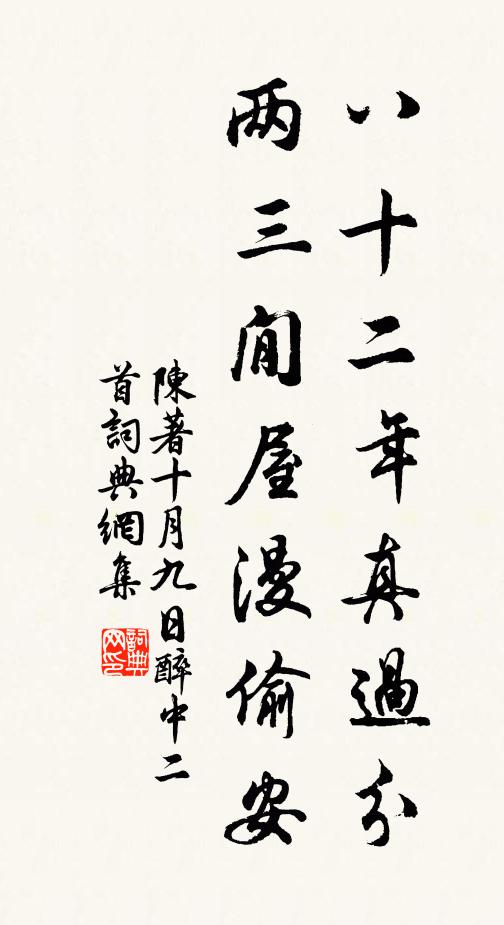 八十二年真過分
两三间屋漫偷安
陳著十月九日醉中二
首詞典網集
詞典
网印